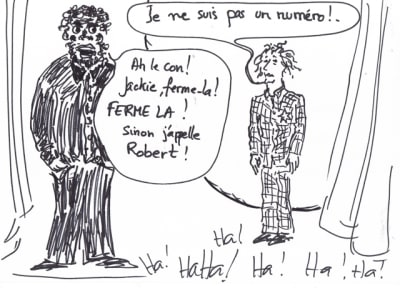 Je ne suis pas un numéro !..
Ah le con !
Jackie, ferme-la !
FERME LA !
Sinon j'appelle
Robert !
Ha!
Ha! HaHa! Ha! Ha! Ha!